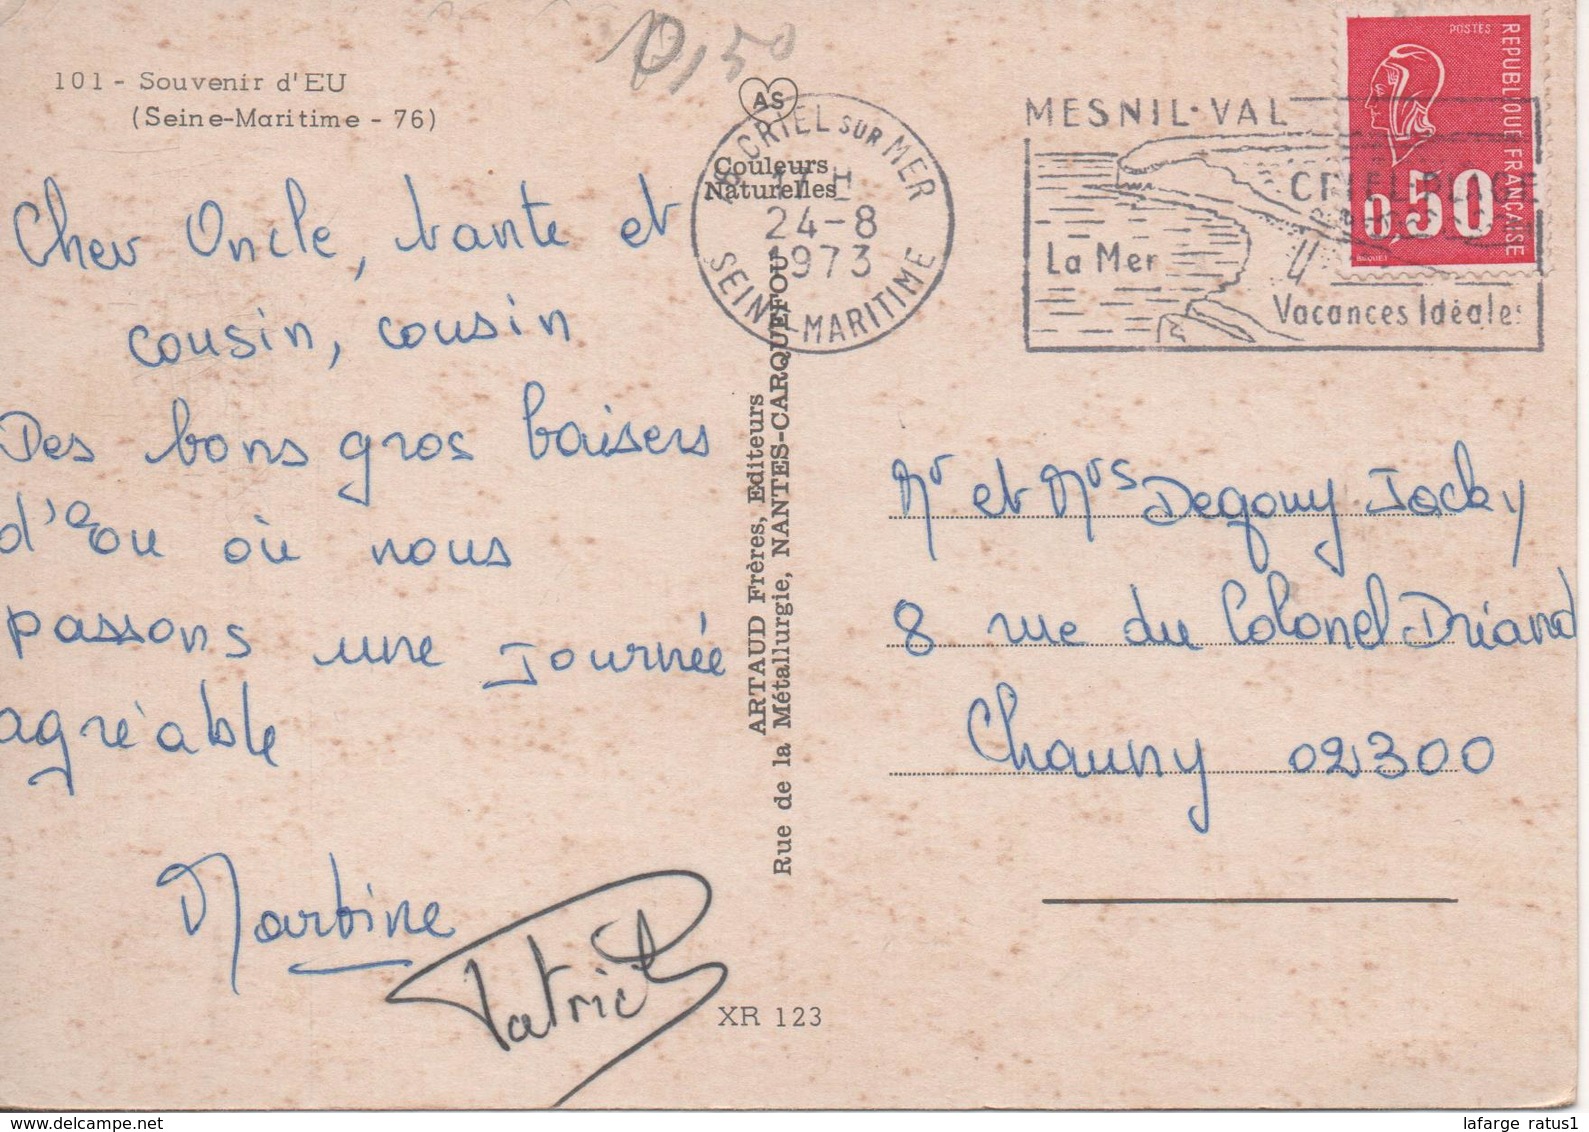 101 - Souvenir d'EU
(Seine-Maritime - 76)
Cher Oncle, tante et
cousin, cousin
Des bons gros baisers
d'Eu où nous
passons une journée
agréable
Martine
Patrick
0,50
AS
Couleurs
Naturelles
CRIEL SUR MER
17 H
24-8
1973
SEINE-MARITIME
ARTAUD Frères, Editeurs
Rue de la Métallurgie, NANTES-CARQUEFOU
XR 123
MESNIL-VAL
CRIEL PLAGE
La Mer
Vacances Idéales
POSTES
REPUBLIQUE FRANÇAISE
0,50
BEQUET
Mr et Mrs Degouy Jacky
8 rue du Colonel Driand
Chauny 02300
lafarge ratus1